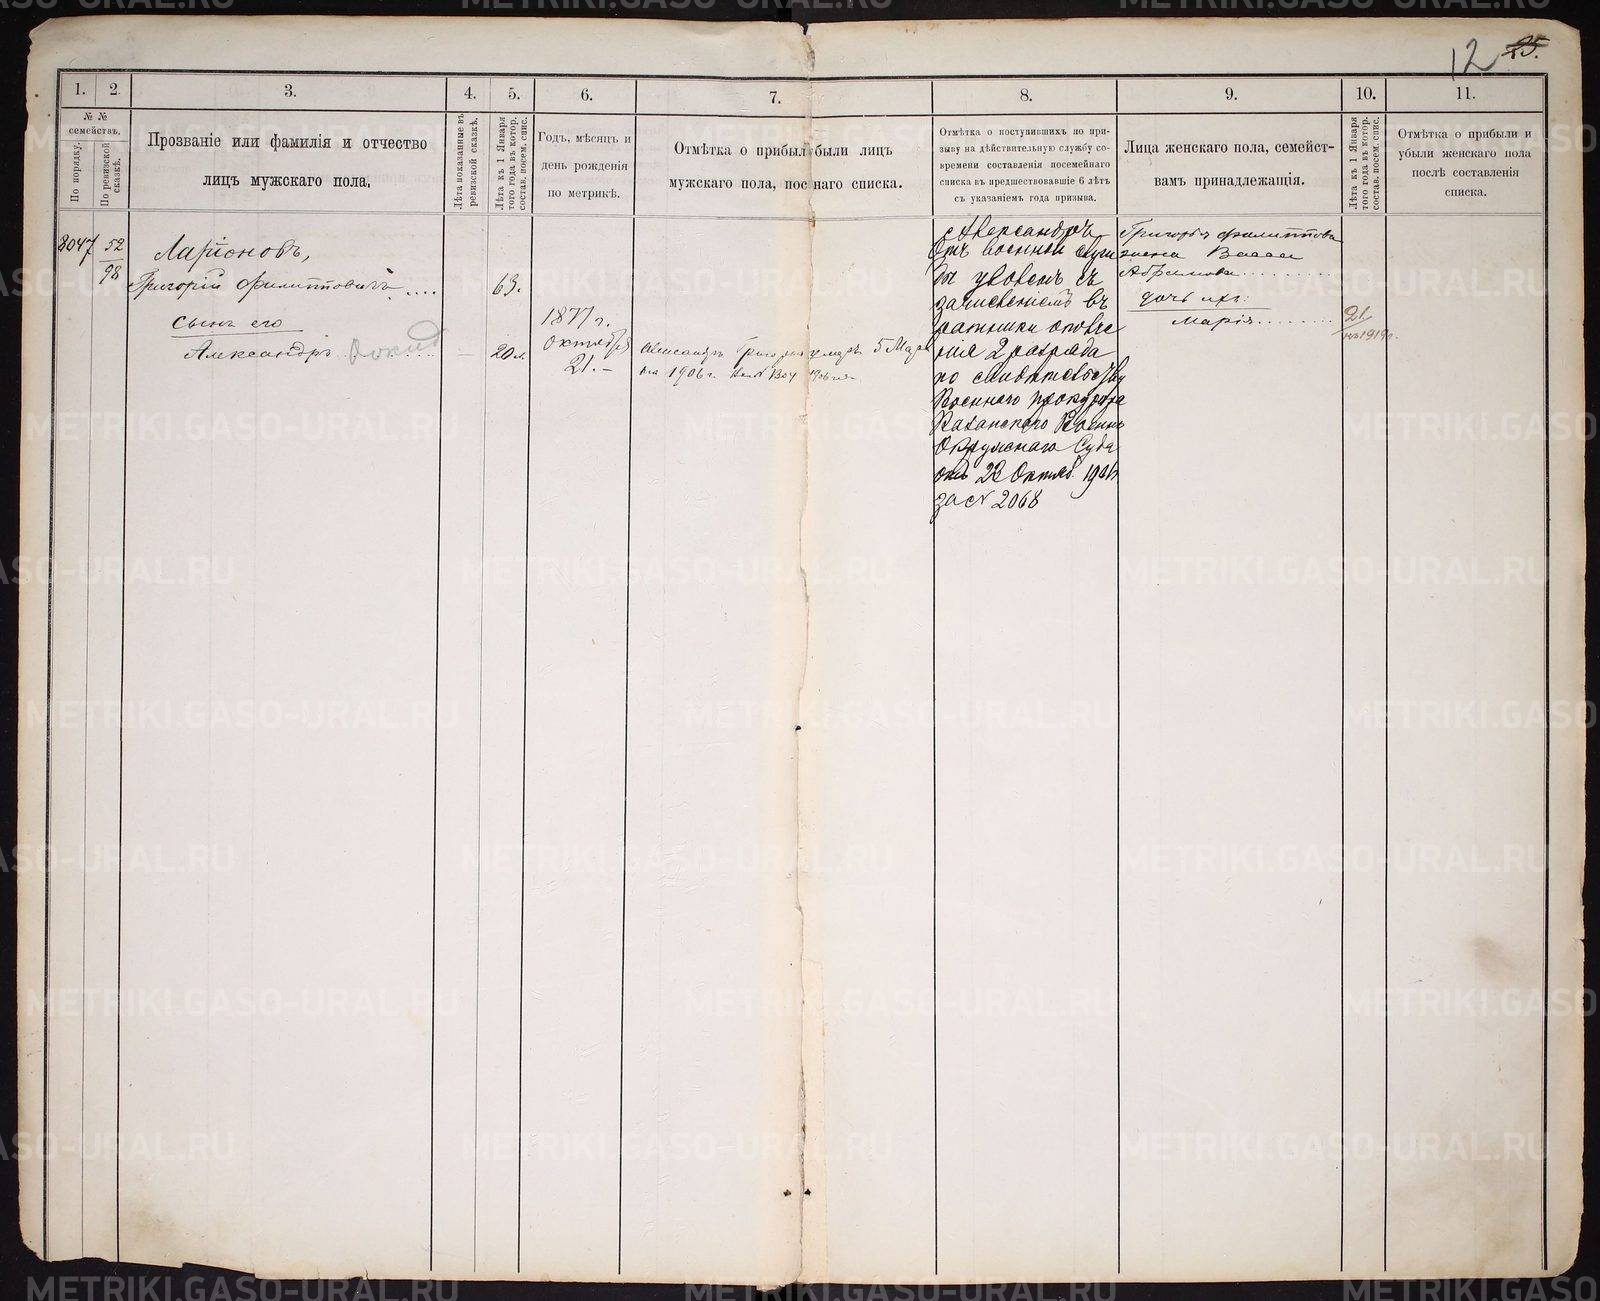 12 25.
1. 2. 3. 4. 5. 6. 7. 8. 9. 10. 11.
№ №
семействъ.
По порядку.
По ревизской
сказкѣ.
Прозваніе или фамилія и отчество
лицъ мужскаго пола.
Лѣта показанные въ
ревизской сказкѣ.
Лѣта къ 1 Января
того года въ котор.
состав. посем. спис.
Годъ, мѣсяцъ и
день рожденія
по метрикѣ.
Отмѣтка о прибыл были лицъ
мужскаго пола, пос наго списка.
Отмѣтка о поступившихъ по при-
зыву на дѣйствительную службу со-
времени составленія посемейнаго
списка въ предшествовавшіе 6 лѣтъ
съ указаніемъ года призыва.
Лица женскаго пола, семейст-
вамъ принадлежащія.
Лѣта къ 1 Января
того года въ котор.
состав. посем. спис.
Отмѣтка о прибыли и
убыли женскаго пола
послѣ составленія
списка.
8047
52
98
Ларіоновъ,
Григорій Филипповичъ
63.
сынъ его
Александръ
20 л.
1877 г.
Октября
21.
Александръ умеръ 5 Мар
та 1906 г.
Александръ
Отъ военной служ
бы уволенъ съ
зачисленіемъ въ
ратники ополче
нія 2 разряда
по свидѣтельству
Военнаго прокурора
Казанскаго Военно
Окружнаго Суда
отъ 23 Октяб.
за № 2068
Григорія Филиппова
жена
Абрамова
дочь ихъ:
Марія
21
METRIKI.GASO-URAL.RU